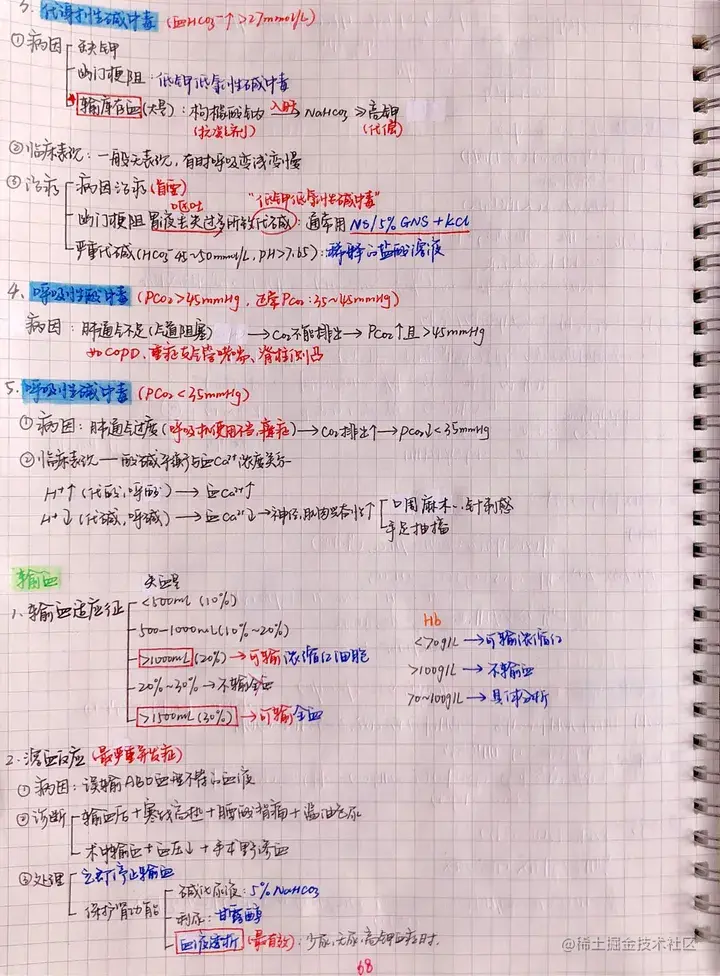 3. 代谢性碱中毒 (血HCO₃⁻↑>27mmol/L)
①病因 缺钾
幽门梗阻:低钾低氯性碱中毒
输库存血(大量):枸橼酸钠 入肝→ NaHCO₃ ⇒高钾
(抗凝剂) (代偿)
②临床表现:一般无表现,有时呼吸变浅变慢
③治疗 病因治疗(首要)
呕吐 “低钾低氯性碱中毒”
幽门梗阻 胃液丢失过多所致代碱:通常用 NS/5% GNS + KCl
严重代碱(HCO₃⁻ 45~50mmol/L, pH>7.65):稀释的盐酸溶液
4. 呼吸性酸中毒 (PCO₂>45mmHg, 正常PCO₂:35~45mmHg)
病因:肺通气不足(气道阻塞) →CO₂不能排出→PCO₂↑且>45mmHg
如COPD、重症支气管哮喘、脊柱侧凸
5. 呼吸性碱中毒 (PCO₂<35mmHg)
①病因:肺通气过度(呼吸机使用不当,癔症)→CO₂排出↑→PCO₂↓<35mmHg
②临床表现—酸碱平衡与血Ca²⁺浓度关系
H⁺↑(代酸,呼酸)→血Ca²⁺↑
H⁺↓(代碱,呼碱)→血Ca²⁺↓→神经,肌肉兴奋性↑ 口周麻木、针刺感
手足抽搐
输血
失血量
1. 输血适应征 <500mL (10%)
500-1000mL(10%~20%)
>1000mL(20%)→可输浓缩红细胞
20%~30%→不输全血
>1500mL(30%)→可输全血
Hb
<70g/L→可输浓缩红
>100g/L→不输血
70~100g/L→具体分析
2. 溶血反应 (最严重并发症)
①病因:误输ABO血型不符的血液
②诊断 输血后+寒战高热+腰酸背痛+酱油色尿
术中输血+血压↓+手术野渗血
③处理 立即停止输血
保护肾功能 碱化尿液:5% NaHCO₃
利尿:甘露醇
血液透析(最有效):少尿,无尿,高钾血症时.
68
@稀土掘金技术社区